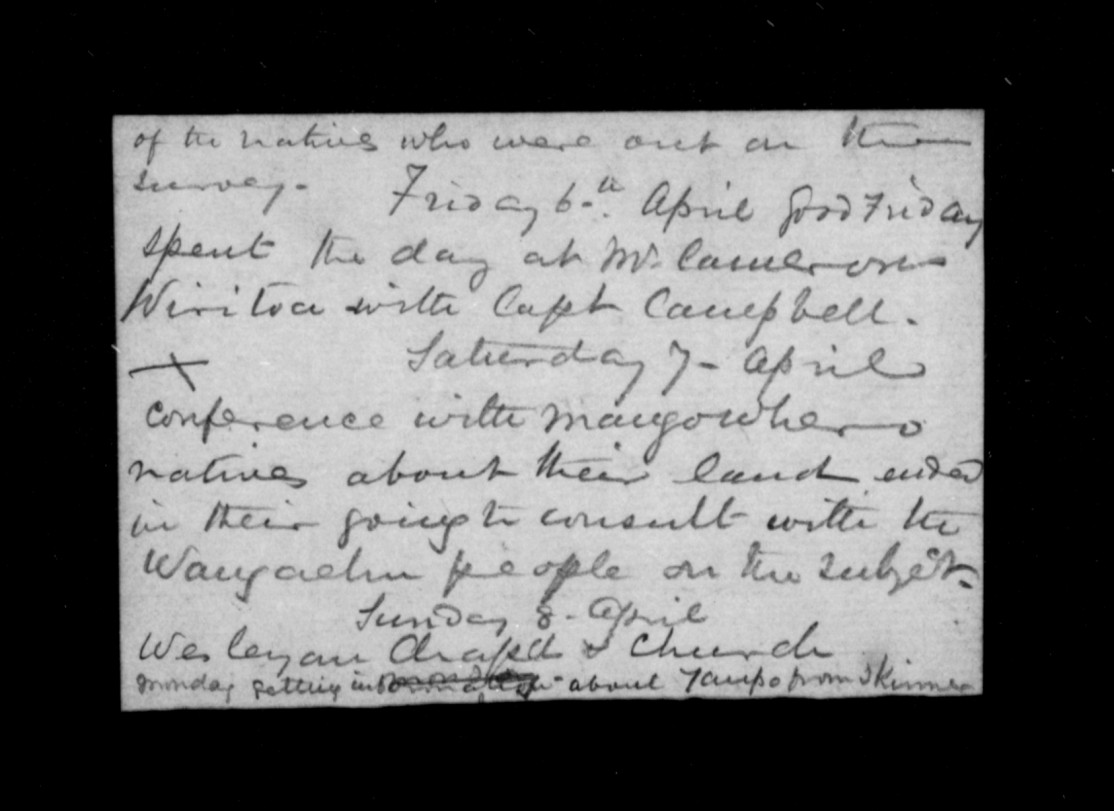 of the natives who were out on the
survey. Friday 6th. April Good Friday
spent the day at Mr. Camerons
Wiritoa with Capt Campbell.
Saturday 7- April
conference with Mangowhero
natives about their land ended
in their going to consult with the
Wangaehu people on the subject.
Sunday 8- April
Wesleyan Chapel & Church
Monday getting about Taupo from Skinner